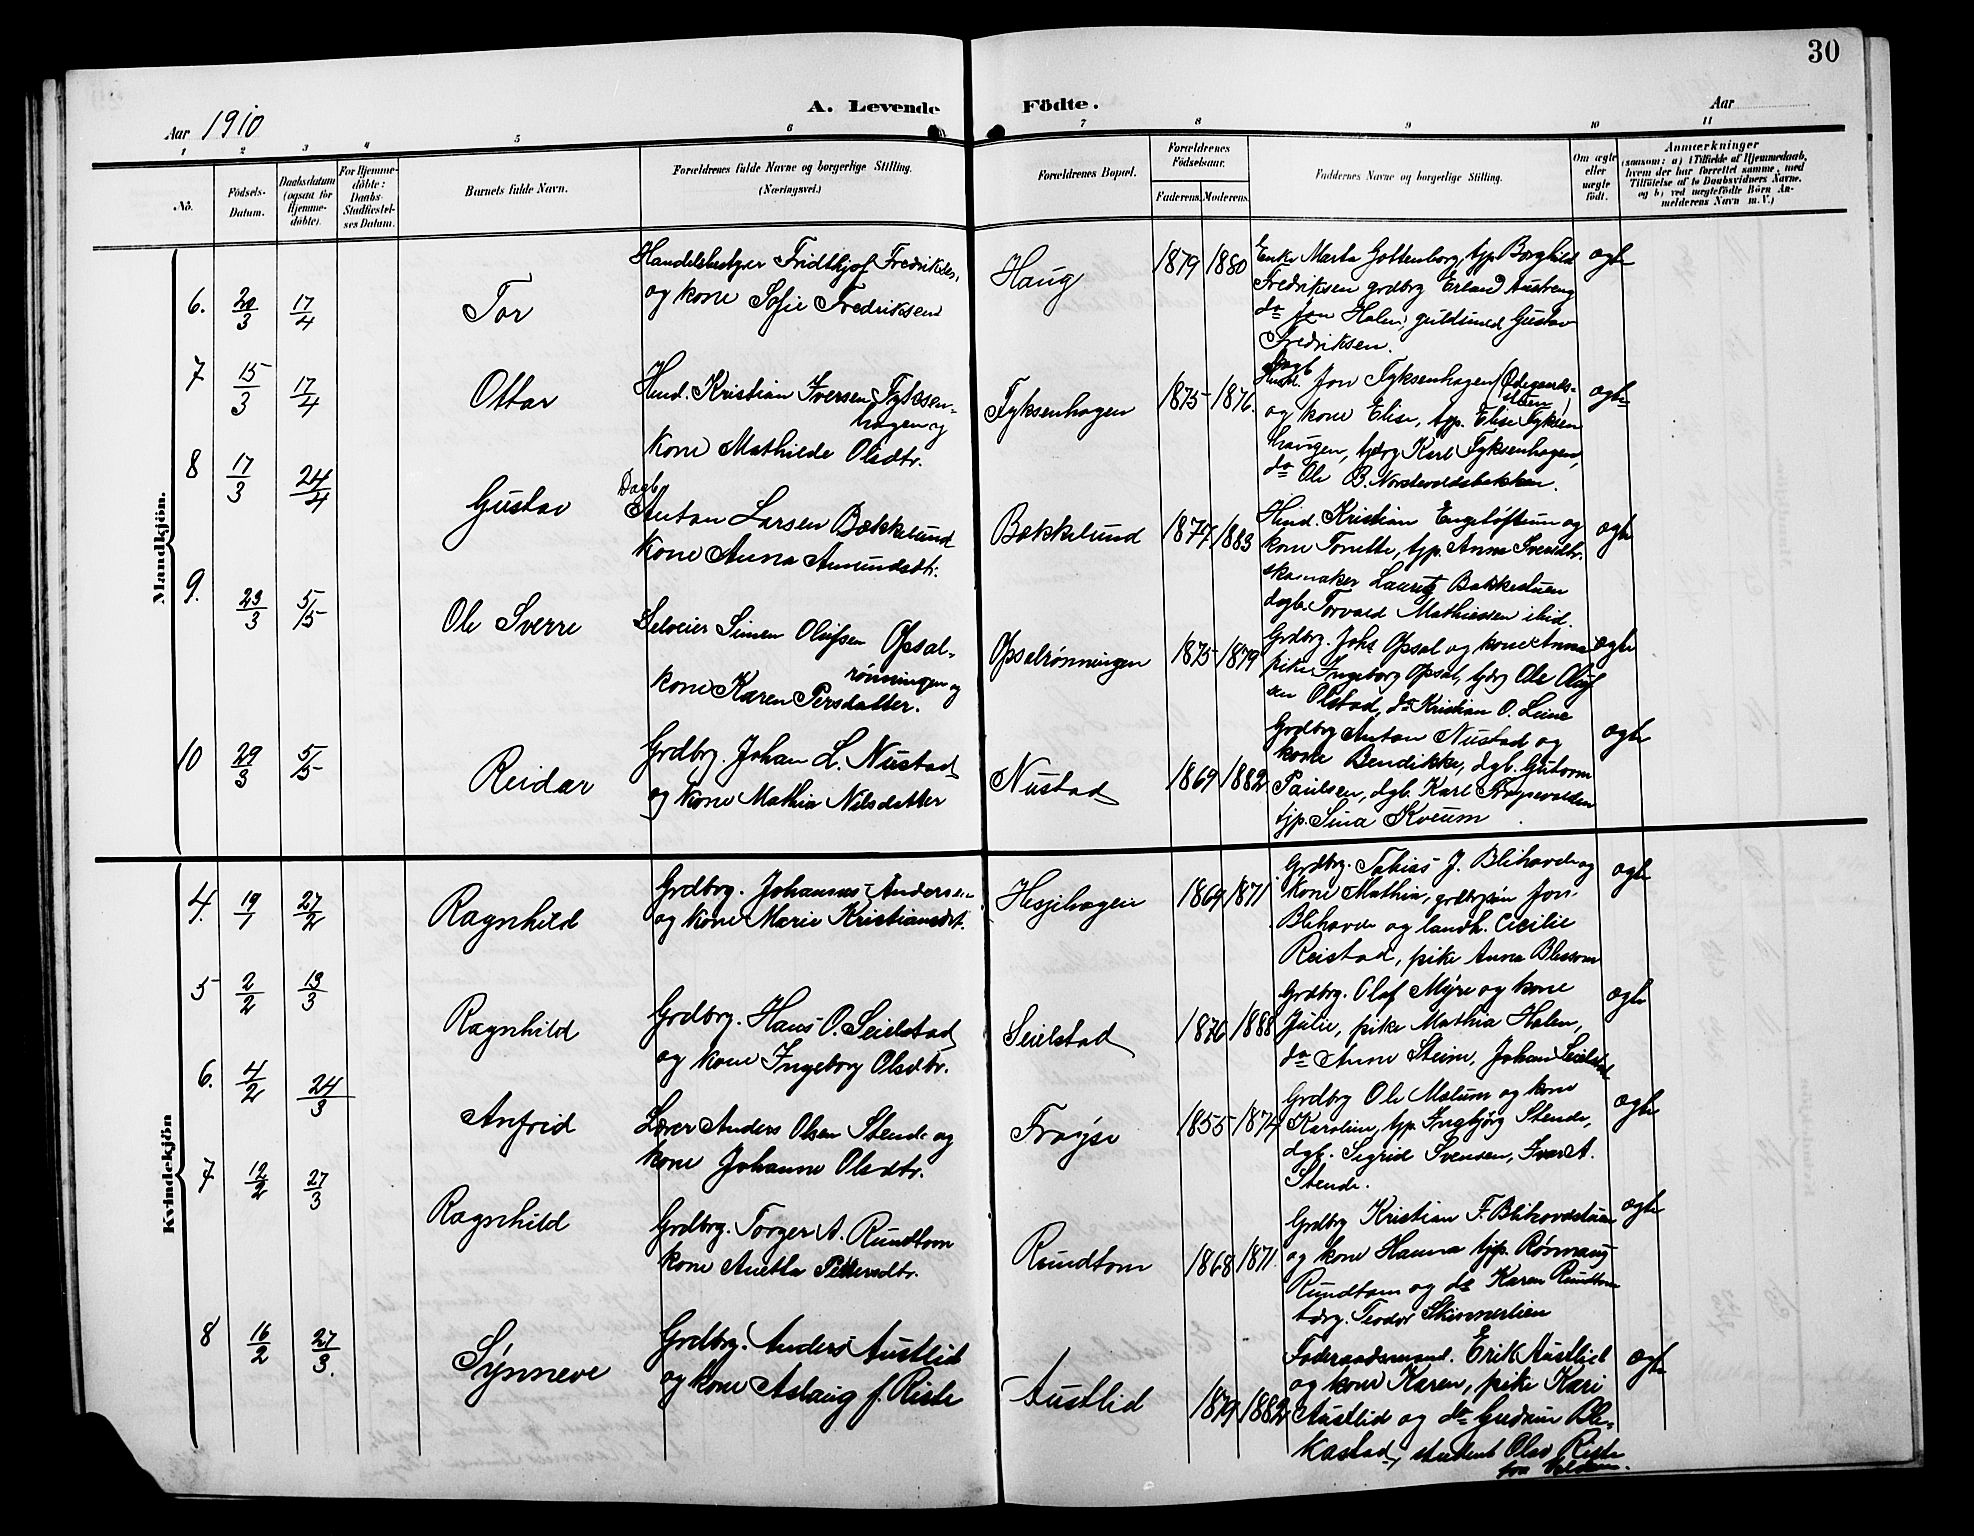 30
A. Levende Födte.
Aar 1910
Aar
1 2 3 4 5 6 7 8 9 10 11
No.
Födsels-Datum.
Daabsdatum (ogsaa for Hjemmedöbte).
For Hjemmedöbte: Daabs-Stadfæstelses Datum.
Barnets fulde Navn.
Forældrenes fulde Navne og borgerlige Stilling. (Næringsvei.)
Forældrenes Bopæl.
Forældrenes Födselsaar.
Faderens. Moderens.
Faddernes Navne og borgerlige Stilling.
Om ægte eller uægte födt.
Anmærkninger
(saasom: a) i Tilfælde af Hjemmedaab,
hvem der har forrettet samme, med
Tilföielse af to Daabsvidners Navne.
og b) ved uægtefödte Börn An-
melderens Navn m. V.)
Mandkjön.
6. 20/3 17/4 Tor
Handelsbestyrer Fridthjof Fredriksen,
og kone Sofie Fredriksen
Haug 1879 1880
Enke Marta Gottenborg, tjp. Borghild
Fredriksen grdbrg Erland Austeng
do Jon Holen, guldsmed Gustav
Fredriksen.
ægte
7 15/3 17/4 Ottar
Husd. Kristian Iversen Fyksen-
hagen og
kone Mathilde Olsdtr.
Fyksenhagen 1875 1876.
Husd. Jon Fyksenhagen (Ødegaards-
og kone Elise, tjp. Elise Fyksen
haugen, tjdrg Karl Fyksenhagen,
do Ole B. Nordvoldsbakken.
ægte
8 17/3 24/4 Gustav
Dagb.
Anton Larsen Bækkelund
kone Anna Amundsdtr.
Bækkelund 1877 1883
Husd. Kristian Engeløftum og
kone Tonette, tjp. Anna Iversdtr.
skomaker Lauritz Bakkestuen
dagb. Torvald Mathiesen ibid.
ægte
9. 23/3 5/5 Ole Sverre
Selveier Simen Olufsen Opsal-
rønningen og
kone Karen Persdatter.
Opsalrønningen 1875 1879
Grdbrg. Johs Opsal og kone Anna
pike Ingeborg Opsal, tjdrg Ole Oluf
sen Olstad, do Kristian O. Lune
ægte
10 29/3 5/5 Reidar
Grdbrg. Johan L. Nustad
og kone Mathia Nilsdatter
Nustad 1869 1882
Grdbrg Anton Nustad og
kone Bendikke, dgb. Gutorm
Paulsen, dgb. Karl Frøysevolden
tjp. Sina Kveum
ægte
Kvindekjön
4. 19/1 27/2 Ragnhild
Grdbrg. Johannes Andersen
og kone Marie Kristiansdt.
Hesjehagen 1869 1871
Grdbrg. Tobias J. Blihovde og
kone Mathia, grdbrsøn Jon
Blihovde og landh. Cecilie
Reistad, pike Anna Blessom
ægte
5 2/2 13/3 Ragnhild
Grdbrg. Hans O. Seielstad
og kone Ingeborg Olsdtr.
Seielstad 1876 1888
Grdbrg. Olaf Myre og kone
Julie, pike Mathia Holen,
do Anne Steine, Johan Seielstad
ægte
6. 4/2 24/3 Anfrid
Lærer Anders Olsen Stende og
kone Johanne Olsdtr.
Frøyse 1855 1874
Grdbrg Ole Molum og kone
Karoline, tjp. Ingbjørg Stende,
dgb. Sigrid Svensen, Ivar A.
Stende.
ægte
7 12/2 27/3 Ragnhild
Grdbrg. Torger A. Rundtom
kone Anette Pettersdtr.
Rundtom 1868 1871.
Grdbrg Kristian F. Blihovdstuen
og kone Hanna tjp. Rønnaug
Rundtom og do Karen Rundtom
tdrg. Teodor Skinnerlien
ægte
8 16/2 27/3. Synneve
Grdbrg. Anders Austlid
og kone Aslaug f. Riste
Austlid 1879 1882
Føderaadsmand. Erik Austlid
og kone Karen, pike Kari
Austlid og do Gudrun Ble-
kastad, student Olav Riste
fra Volden.
ægte